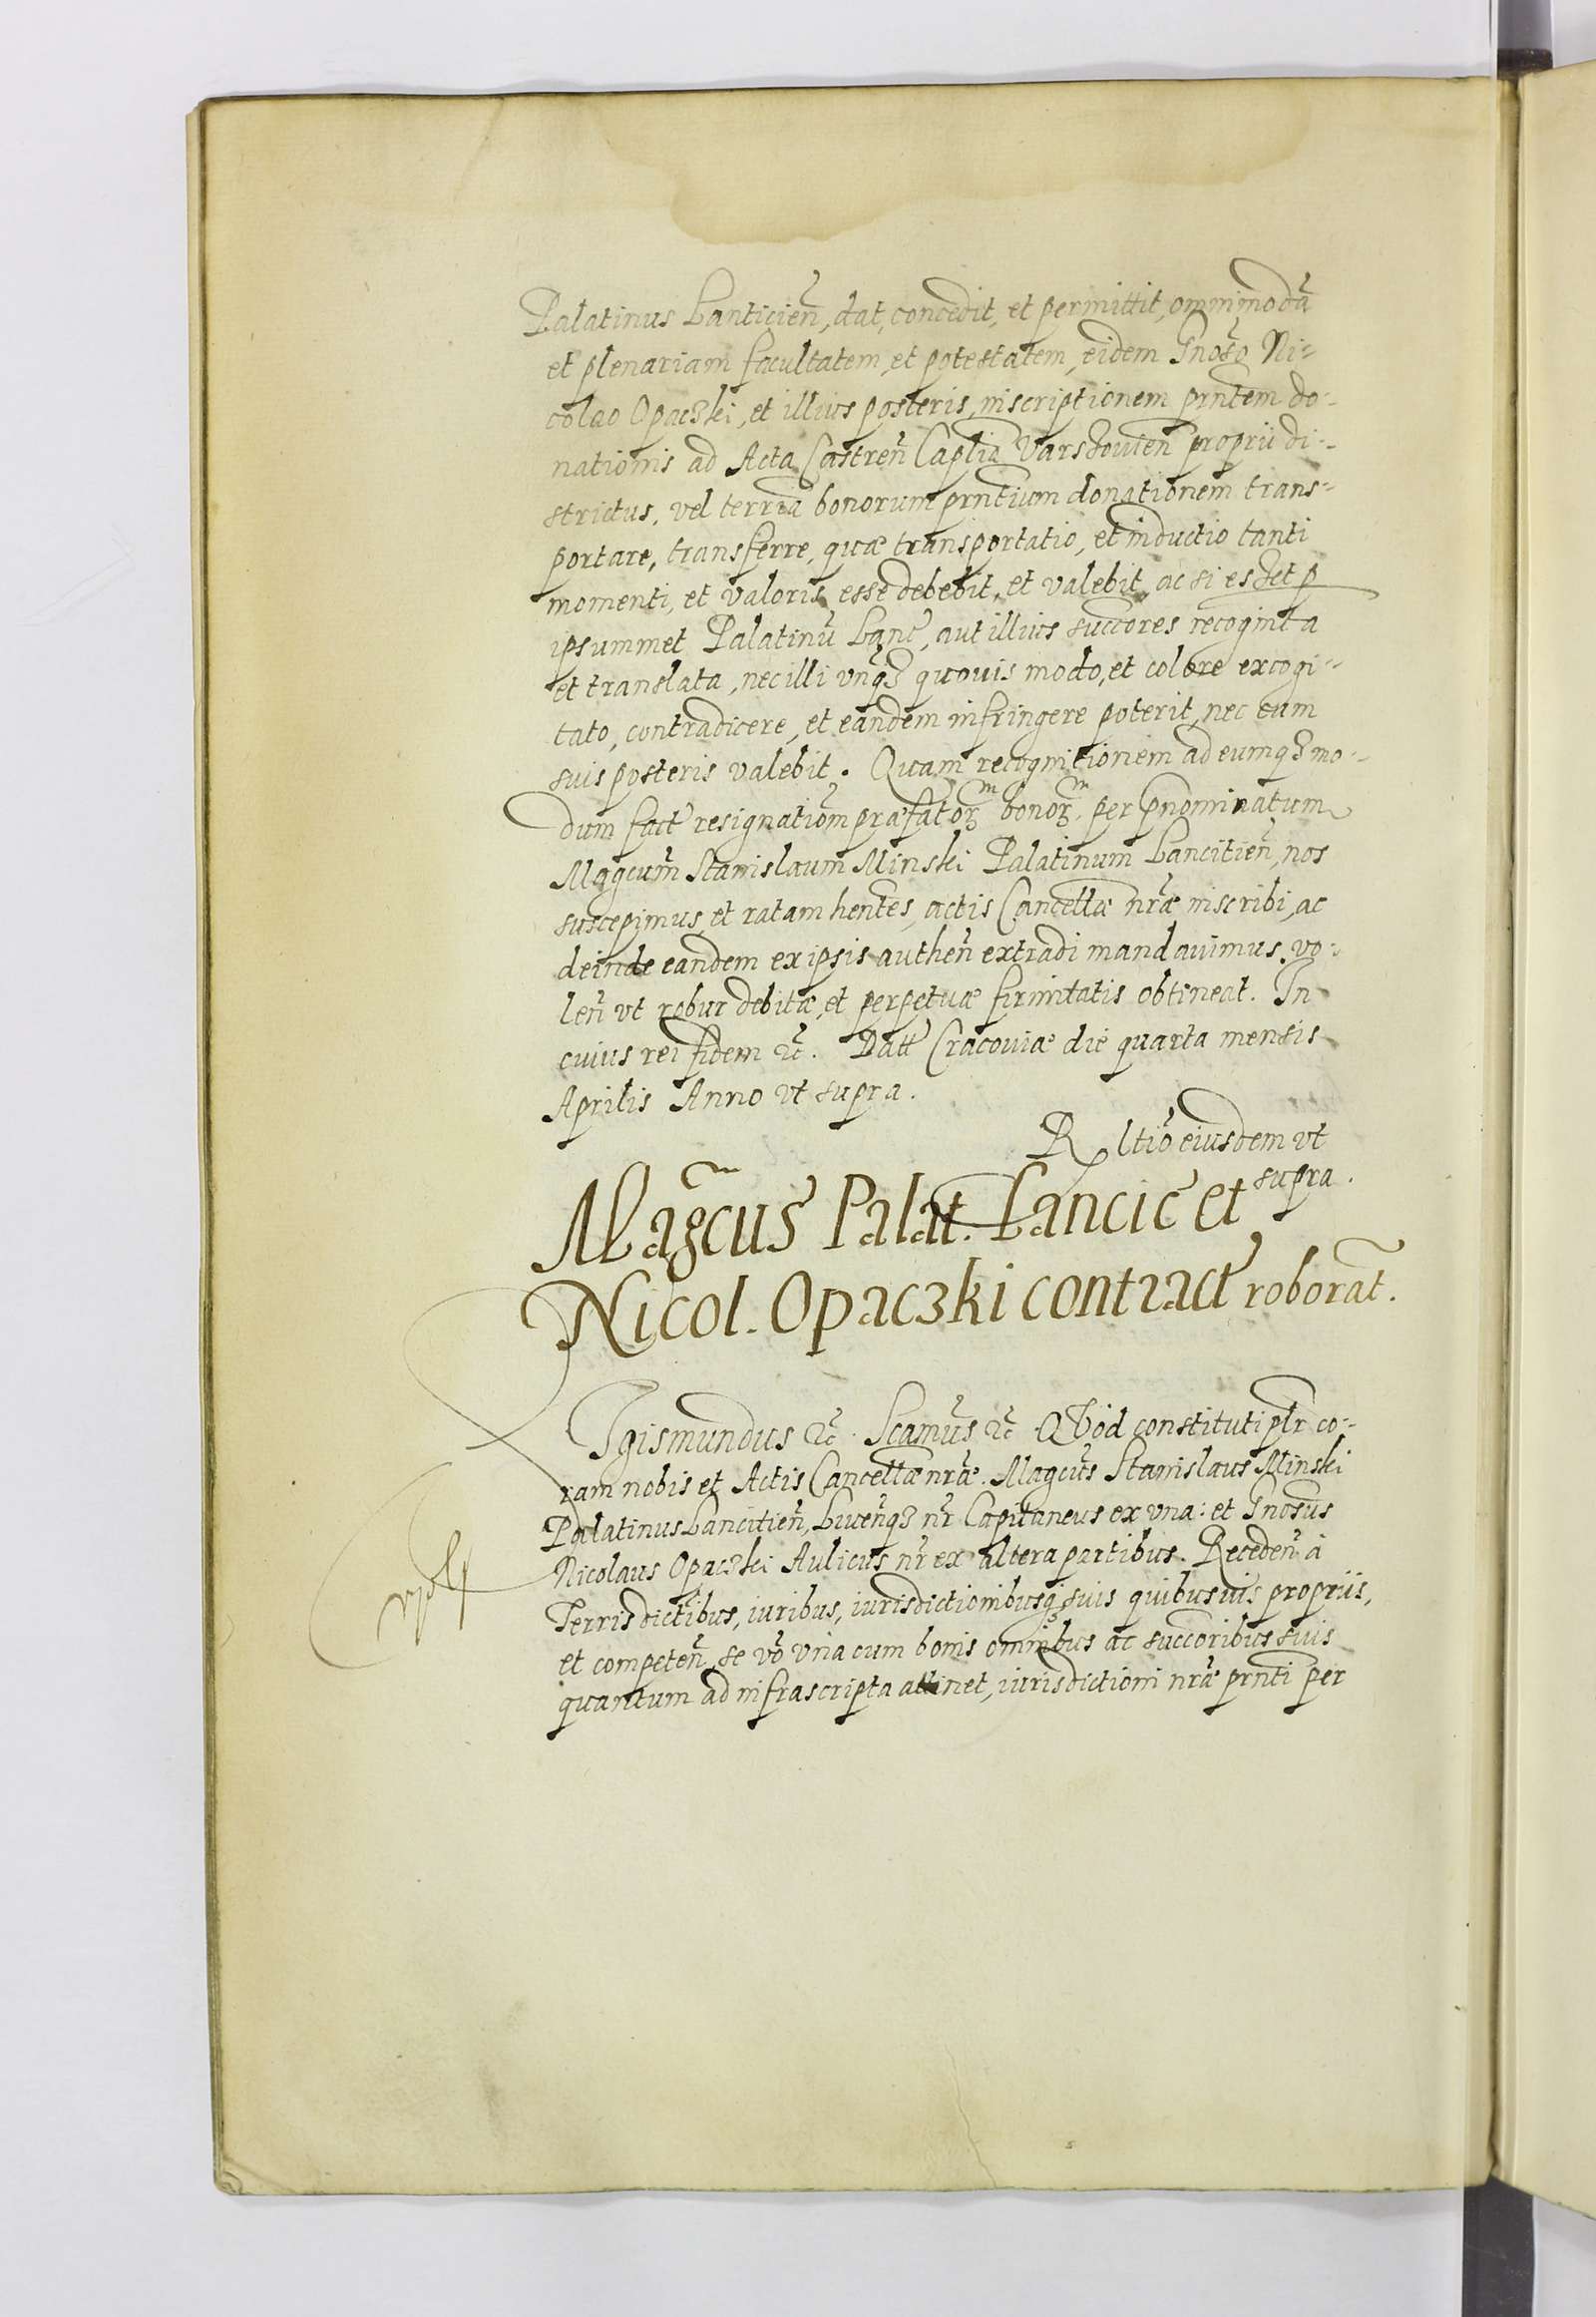 Palatinus Lanticień, dat, concedit, et permittit, omnimodā
et plenariam facultatem, et potestatem, eidem Gnoso Ni-
colao Opaczki, et illius posteris, inscriptionem prñtem do-
nationis ad Acta Castreń Caplia Varshouień proprii di-
strictus, vel terria bonorum prñtium donationem trans-
portare, transferre, quæ transportatio, et inductio tanti
momenti, et valoris esse debebit, et valebit, ac si esset p
ipsummet Palatinū Lanc̃, aut illius succores recognita
et translata, nec illi vnq̃ꝫ quouis modo, et colore excogi-
tato, contradicere, et eandem infringere poterit, nec eum
suis posteris valebit. Quam recognitionem ad eumqꝫ mo-
dum fact̃ resignatiom præfatoꝝ bonoꝝ per pnominatum
Magcum̃ Stanislaum Minski Palatinum Lancitień, nos
suscepimus, et ratam hentes, actis Cancellæ nr̃æ inscribi, ac
deinde eandem ex ipsis autheñ extradi mandauimus, vo-
leñ vt robur debitæ, et perpetuæ firmitatis obtineat. In
cuius rei fidem ꝛc̃. Datt̃ Cracouiæ die quarta mensis
Aprilis Anno vt supra.
Rltiõ eiusdem vt
supra.
Mag̃cus Palat. Lancic̃ et
Nicol. Opaczki contract̃ roborat̃.
Igismundus ꝛc̃. Scamus̃ ꝛc̃ QVod constituti plr̃ co-
ram nobis et Actis Cancellæ nr̃æ. Magcus̃ Stanislaus Minski
Palatinus Lancitień, Liueñqꝫ nr̃ Capitaneus ex vna: et Gnosus̃
Nicolaus Opaczki Aulicus nr̃ ex altera partibus. Recedeñ à
Terris dictibus, iuribus, iurisdictionibusqꝫ suis quibusuis propriis,
et competeñ, se võ vna cum bonis omnibus ac succoribus suis
quantum ad infrascripta attinet, iurisdictioni nr̃æ prñti per